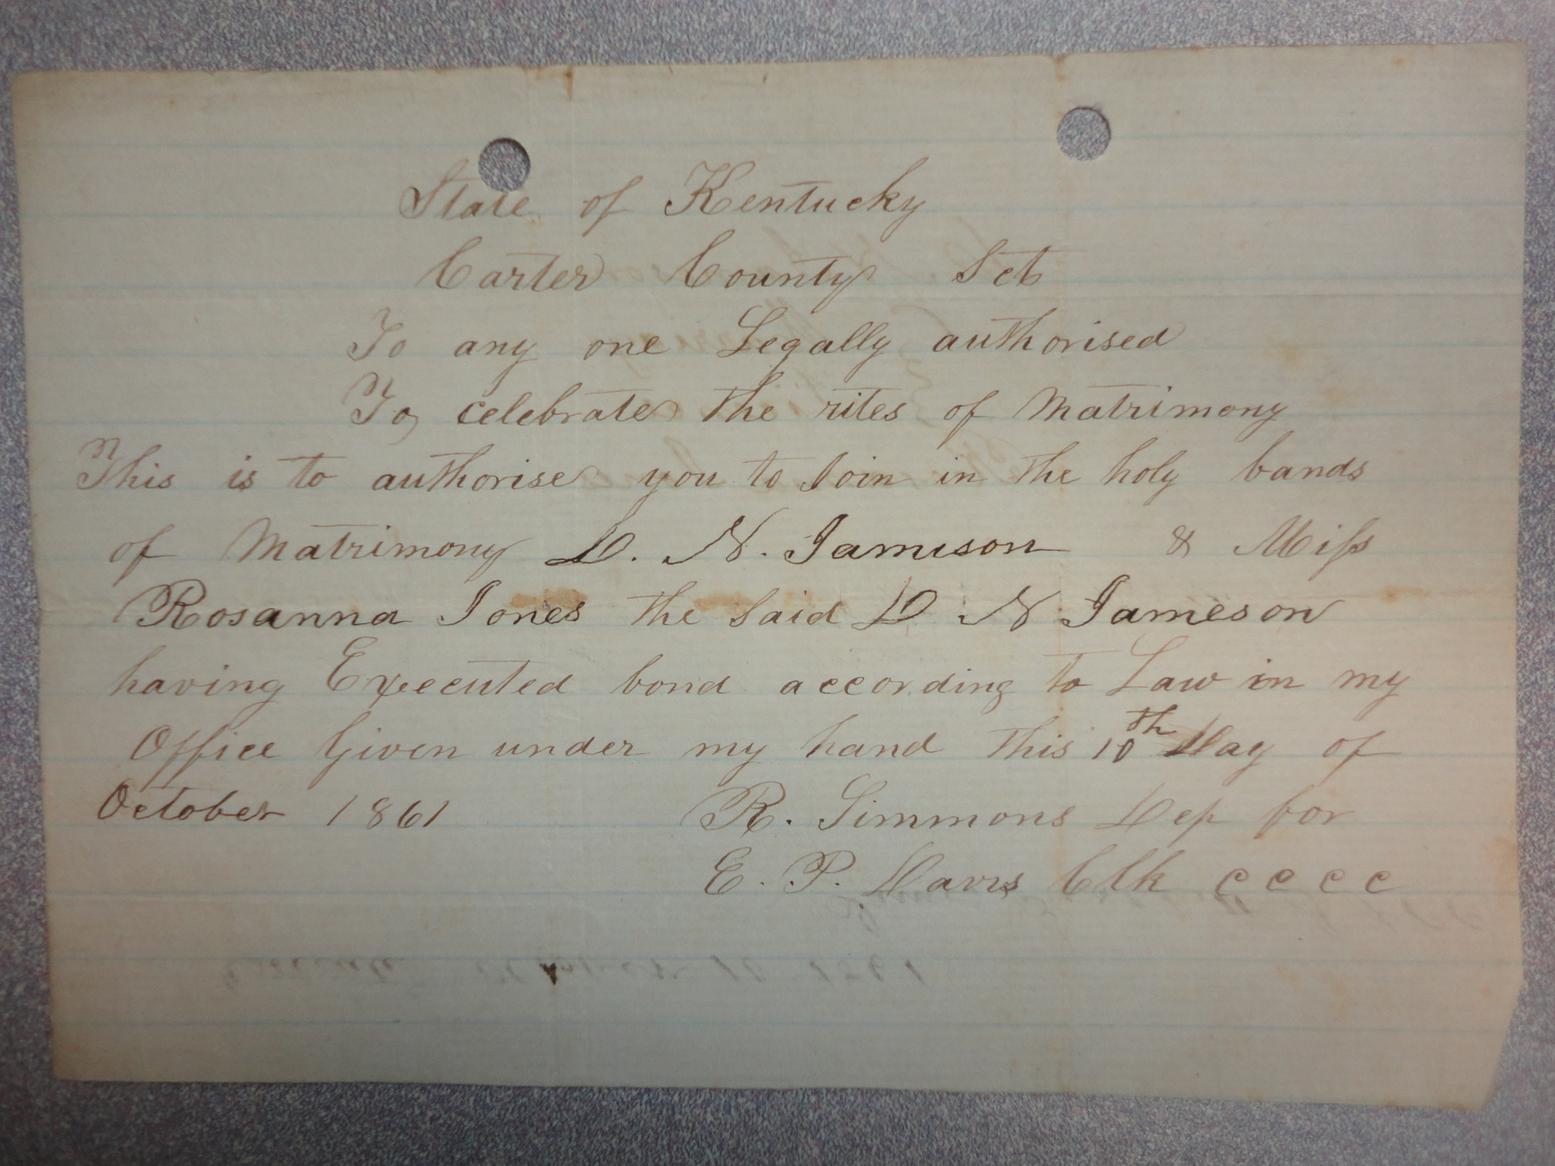 State of Kentucky
Carter County Sct
To any one Legally authorised
To celebrate the rites of Matrimony
This is to authorise you to Join in the holy bands
of Matrimony D. N. Jamison & Miss
Rosanna Jones the Said D N Jameson
having Executed bond according to Law in my
Office Given under my hand this 10th Day of
October 1861 R. Simmons Dep for
E. P. Davis Clk C C C C